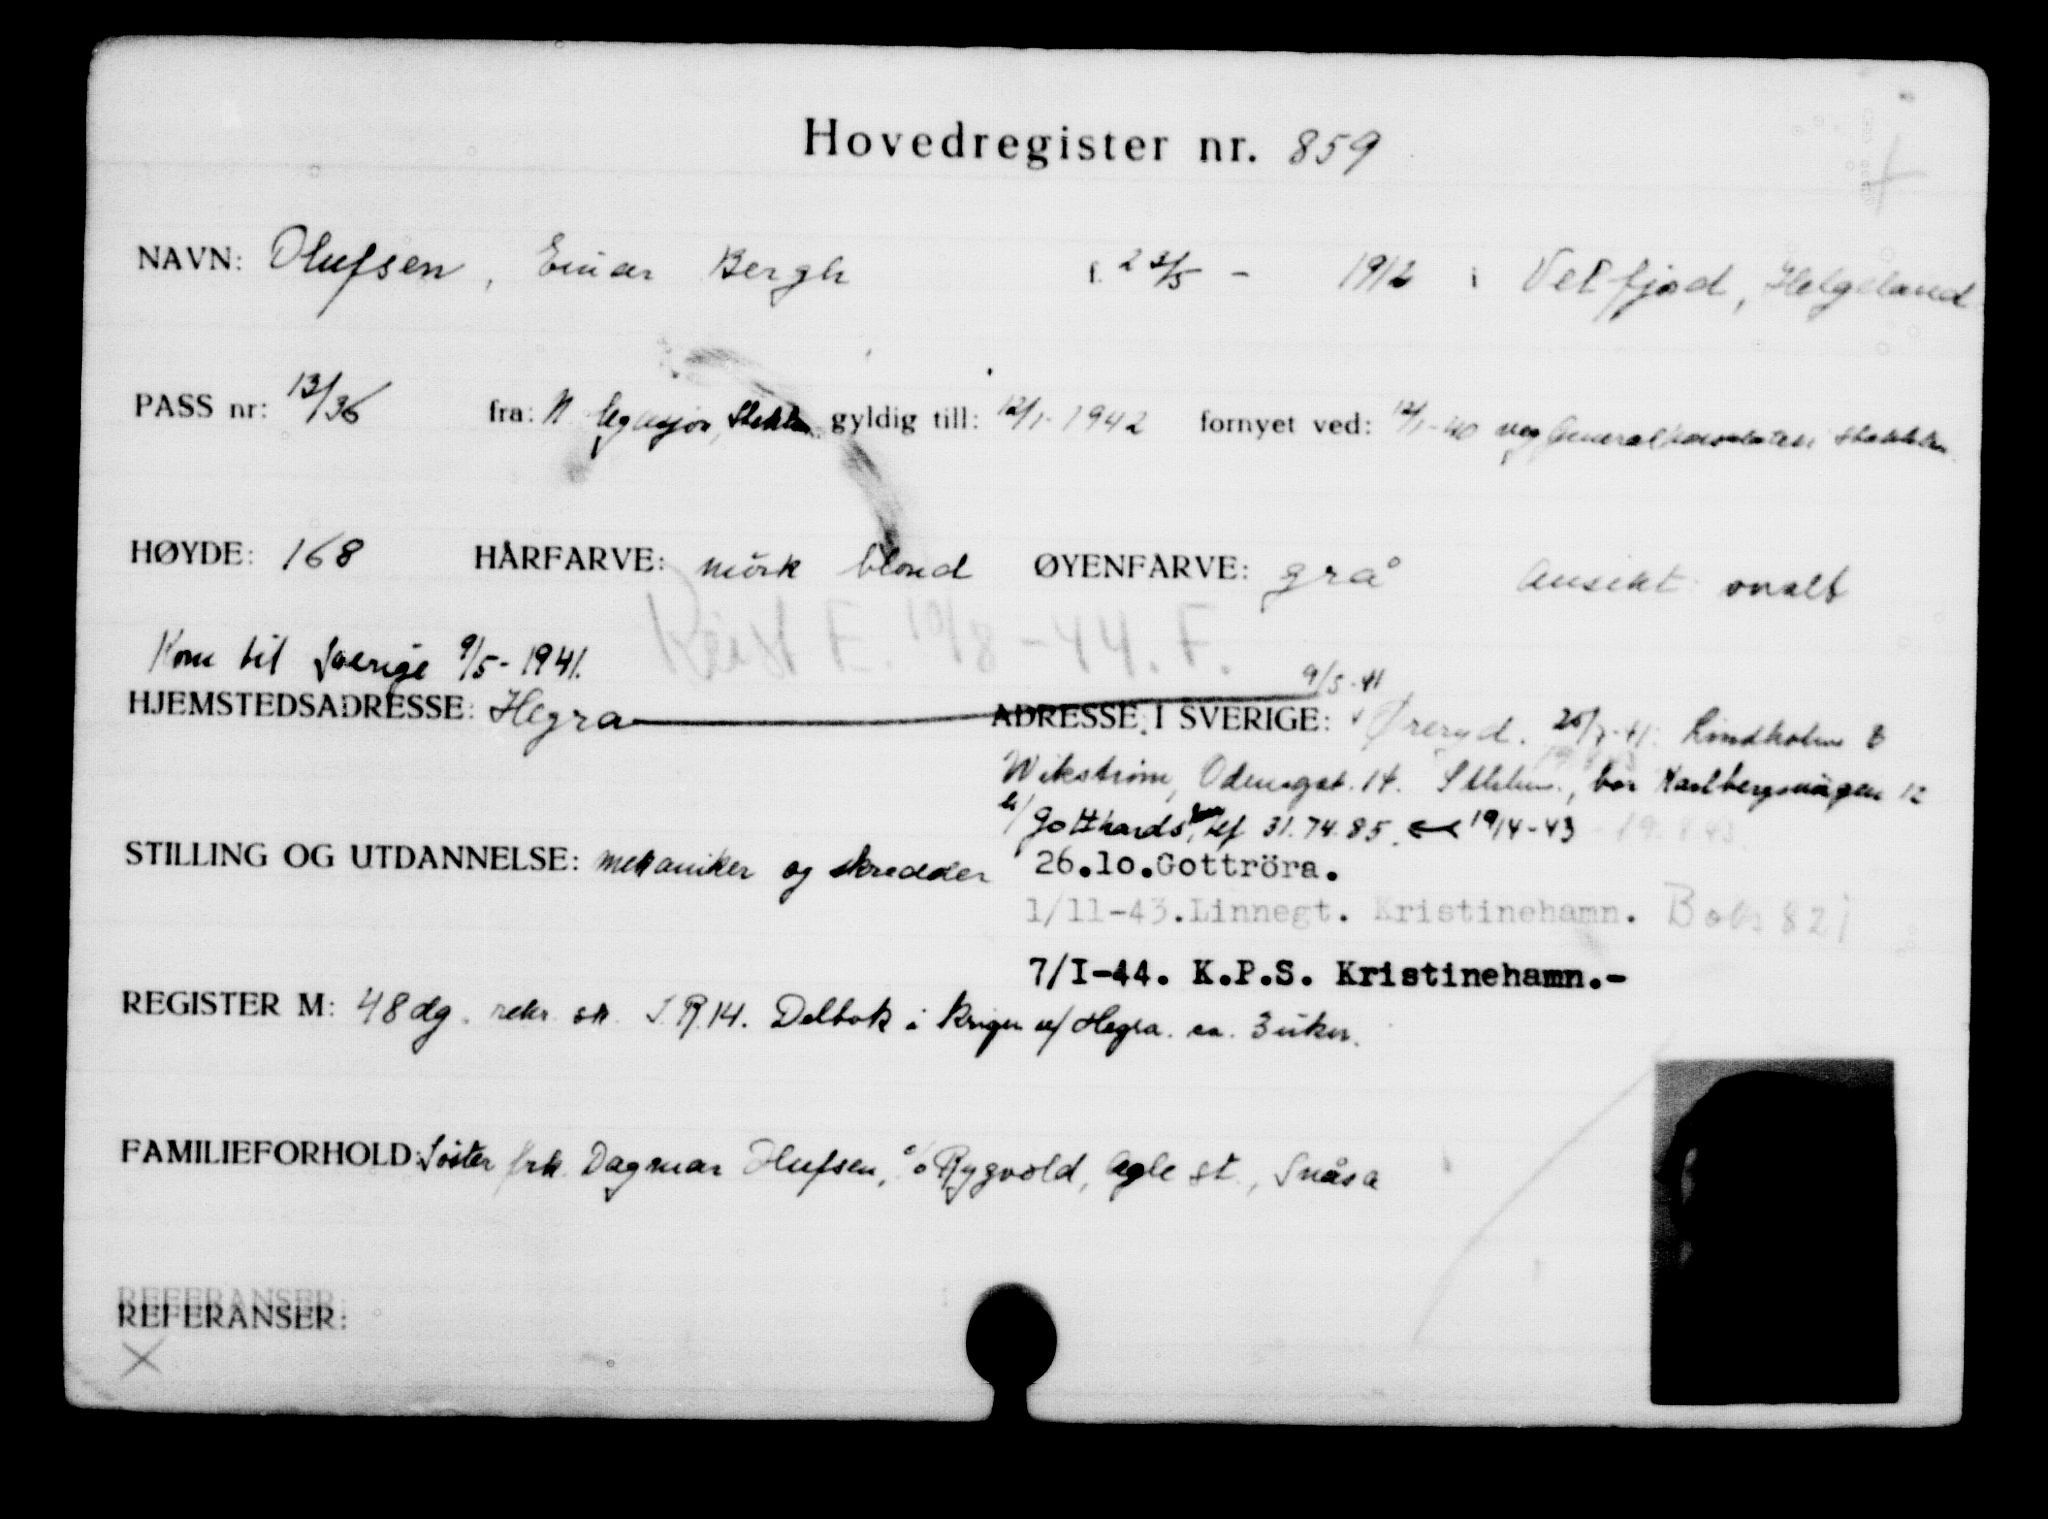 Hovedregister nr. 859
NAVN: Olufsen, Einar Bergh f. 23/5 - 1912 i Velfjord, Helgeland
PASS nr: 13/36 fra: N legasjon, Sthlm gyldig till: 12/1-1942 fornyet ved: 12/1-40 Generalkonsulatet
HØYDE: 168 HÅRFARVE: mörk blond ØYENFARVE: grå Ansikt ovalt
Reist E. 10/8-44. F.
Kom til Sverige 9/5-1941.
HJEMSTEDSADRESSE: Hegra ADRESSE I SVERIGE: 9/5-41 Øreryd. 25/7-41: Lindholm &
Wikström, Odensgat. 14. Sthlm., bor Karlbergsvägen 12
Gotthardsson, tlf 31.74.85. 19/4-43
STILLING OG UTDANNELSE: mekaniker og skredder 26.10.Gottröra.
1/11-43.Linnegt. Kristinehamn. Boks 827
7/I-44. K.P.S. Kristinehamn.-
REGISTER M: 48 dg. rekr. sk. I.R.14. Deltok i krigen v/ Hegra. ca. 3 uker.
FAMILIEFORHOLD: Söster frk. Dagmar Olufsen, c/o Rygvold, Agle st., Snåsa
REFERANSER:
REFERANSER: